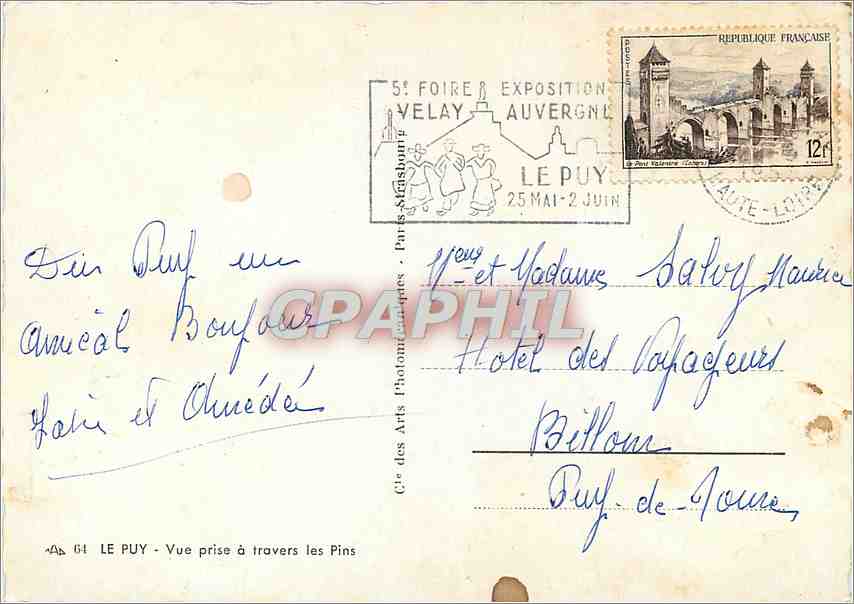 REPUBLIQUE FRANÇAISE
POSTES
Le Pont Valentré (Cahors)
12F
5e FOIRE EXPOSITION
VELAY AUVERGNE
LE PUY
25 MAI - 2 JUIN
HAUTE-LOIRE
Du Puy un
Amical Bonjour
et Amédée
Cie des Arts Photomécaniques - Paris-Strasbourg
CPAPHIL
et Madame Salvy Maurice
Hotel des Voyageurs
Billom
Puy-de-Dome
64 LE PUY - Vue prise à travers les Pins